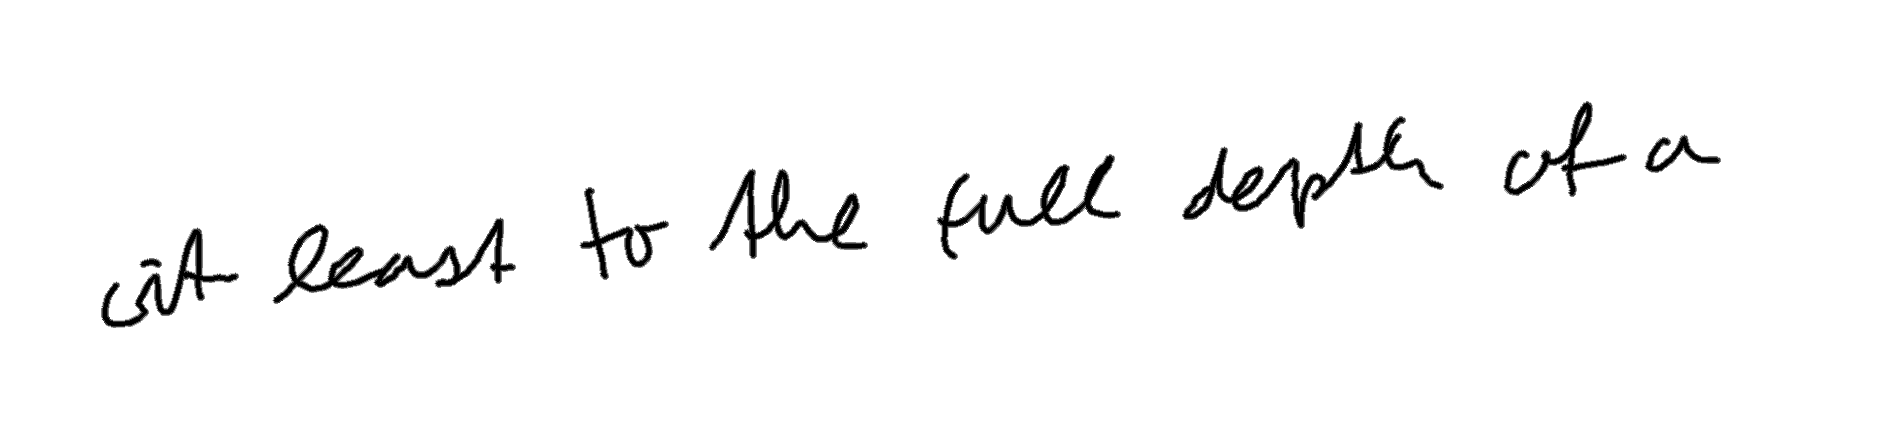 at least to the full depth of a